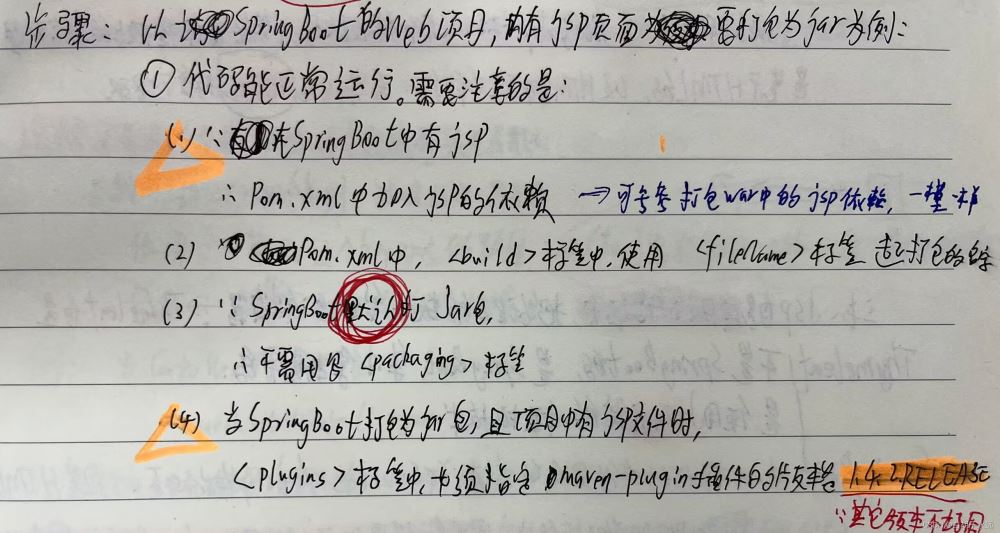 步骤：以 SpringBoot的Web项目，有jsp页面 需打包为jar为例：
① 代码能正常运行。需要注意的是：
(1) ∵ 在SpringBoot中有jsp
∴ Pom.xml中加入jsp的依赖 → 可参考打包war中的jsp依赖，一模一样
(2) Pom.xml中，<build>标签中，使用 <fileName>标签 起打包的名字
(3) ∵ SpringBoot默认打Jar包，
∴ 不需用写 <packaging>标签
(4) 当SpringBoot打包为jar包，且项目中有jsp文件时，
<plugins>标签中，必须指定 maven-plugin插件的版本是 1.4.2.RELEASE
∵其它版本不好用